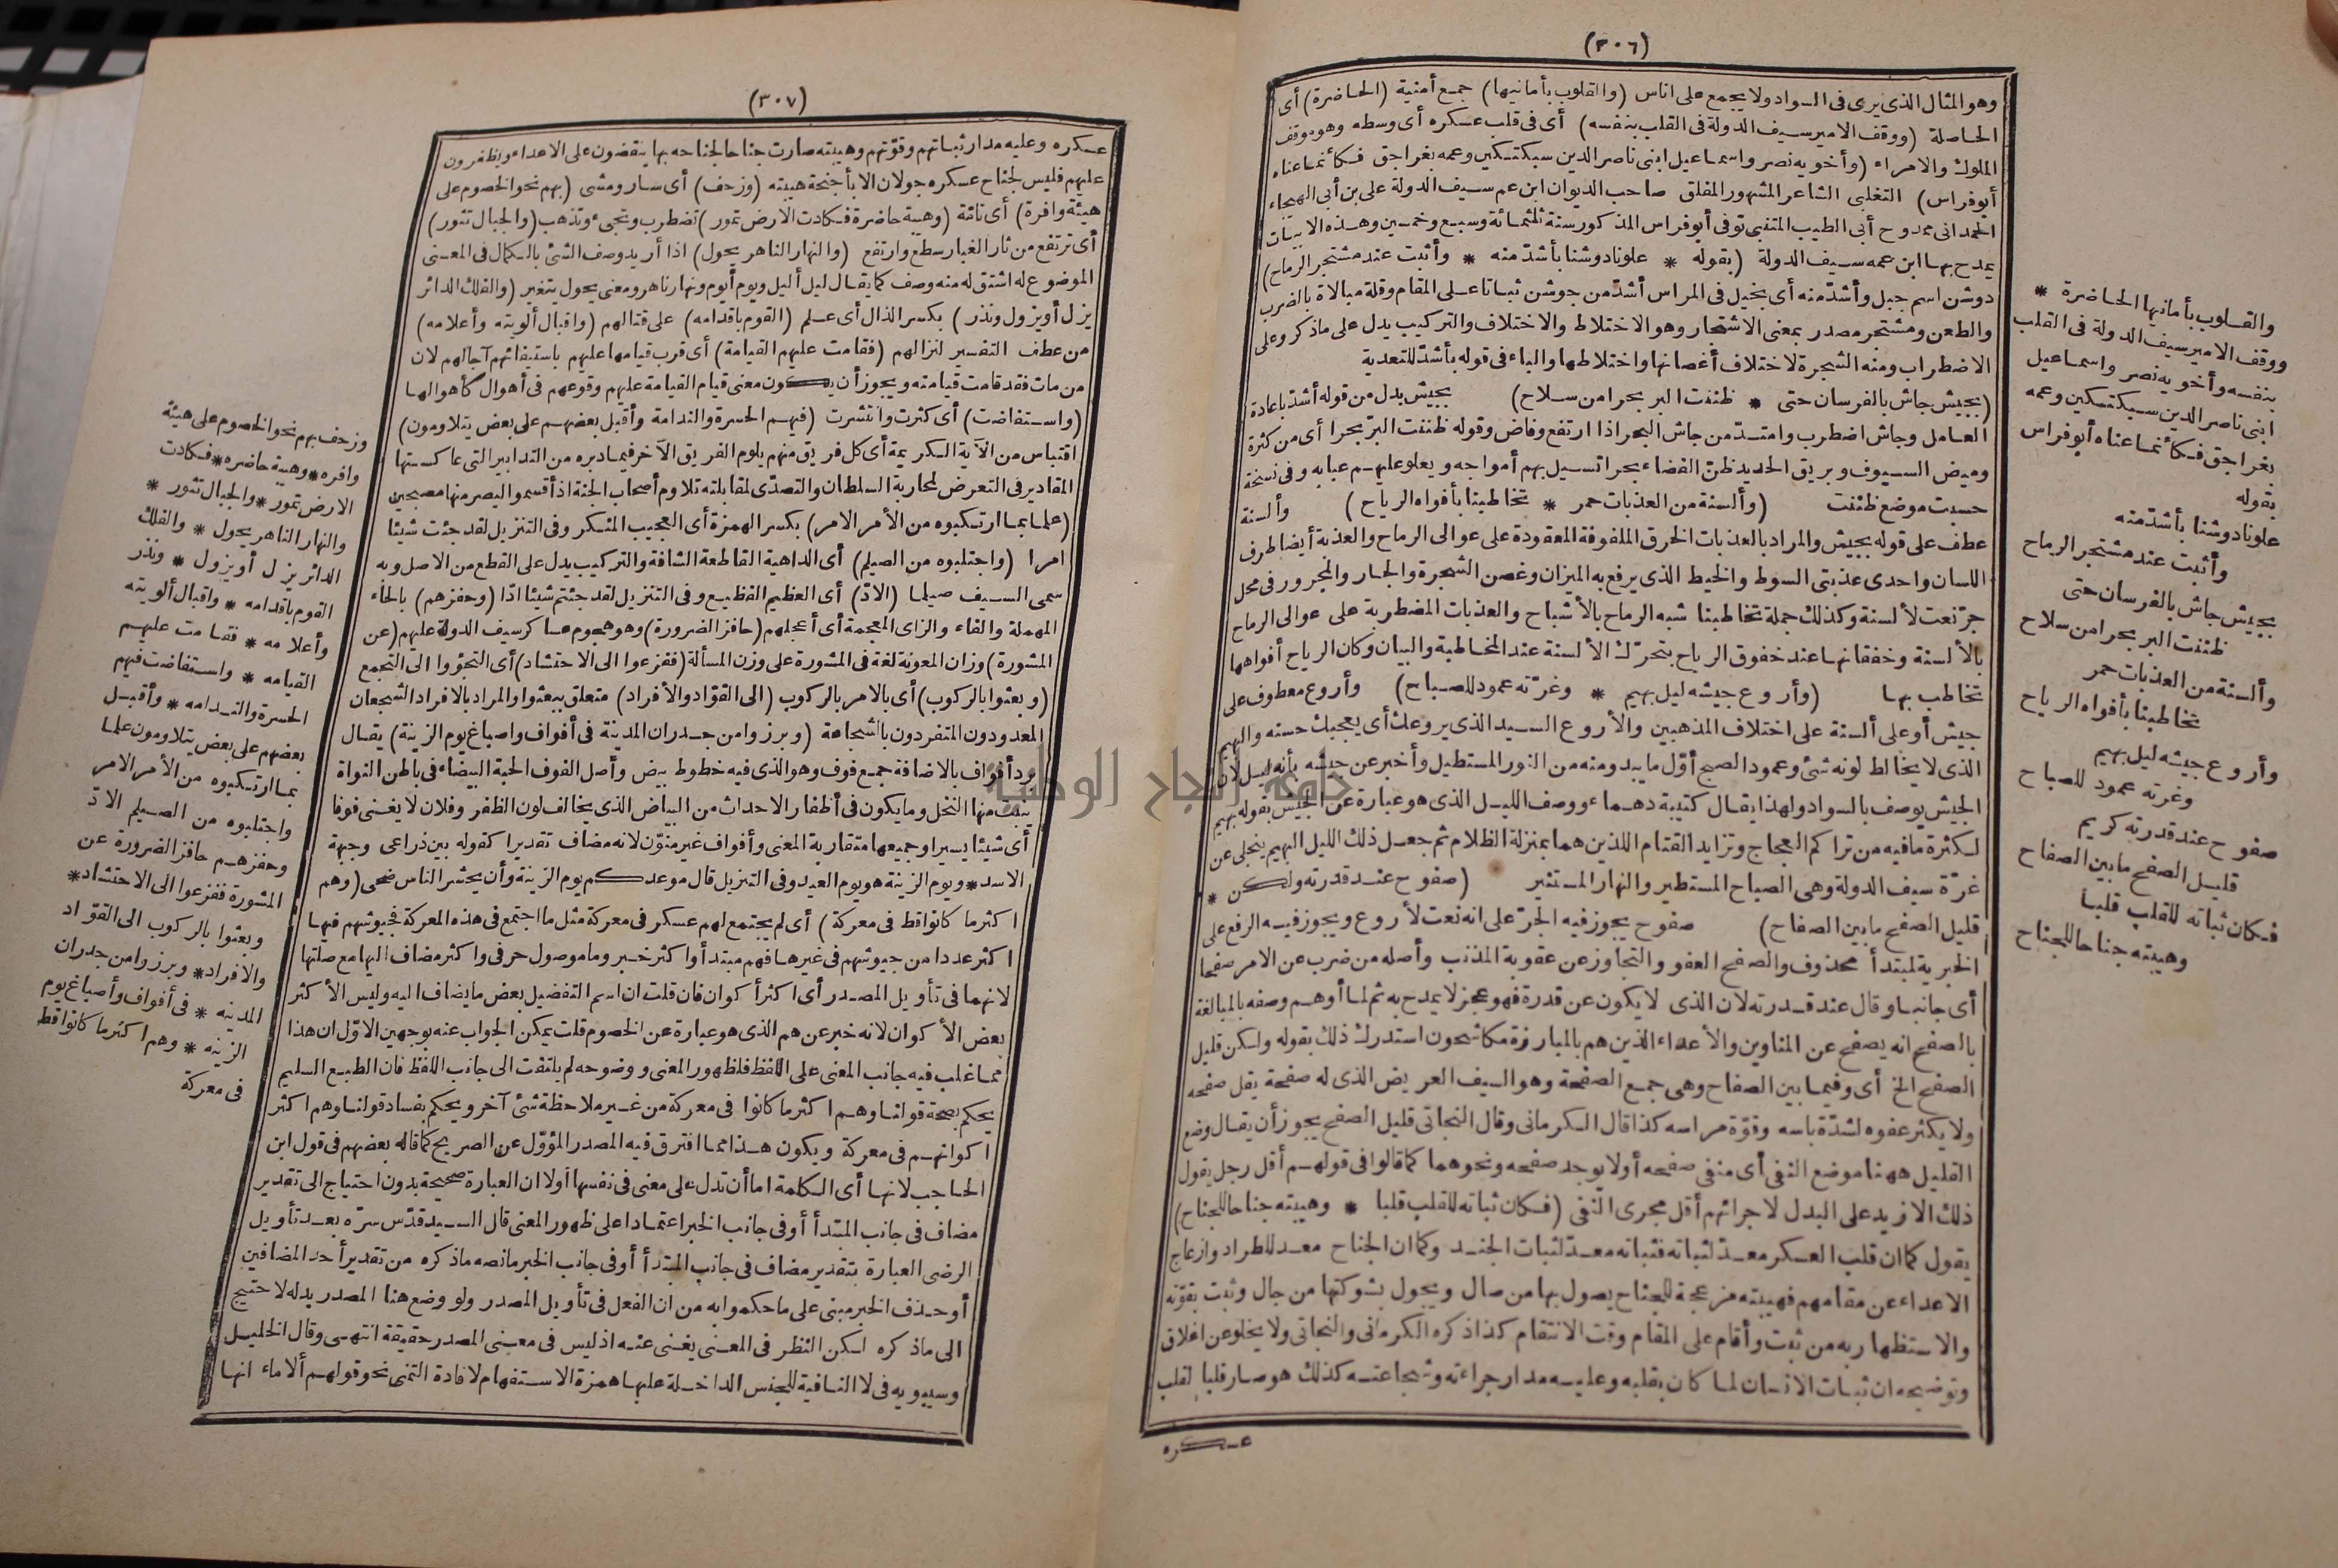 (٣٠٦)
وهو المثال الذى يرى فى السواد ولا يجمع على اناس (والقلوب بأمانيها) جمع أمنية (الحاضرة) أى
الحاصلة (ووقف الامير سيف الدولة فى القلب بنفسه) أى فى قلب عسكره أى وسطه وهو موقف
الملوك والامراء (وأخويه نصر واسماعيل ابنى ناصر الدين سبكتكين وعمه بغراجق فكأنما عناه
أبوفراس) التغلبى الشاعر المشهور المفلق صاحب الديوان ابن عم سيف الدولة على بن أبى الهيجاء
الحمدانى ممدوح أبى الطيب المتنبى توفى أبوفراس المذكور سنة ثلثمائة وسبع وخمسين وهذه الابيات
يمدح بها ابن عمه سيف الدولة (بقوله * علونا دوشنا بأشدّ منه * وأثبت عند مشتجر الرماح)
دوشن اسم جبل وأشدّ منه أى بخيل فى المراس أشدّ من جوشن ثباتا على المقام وقلة مبالاة بالضرب
والطعن ومشتجر مصدر بمعنى الاشتجار وهو الاختلاط والاختلاف والتركيب يدل على ماذكر وعلى
الاضطراب ومنه الشجرة لاختلاف أغصانها واختلاطها والباء فى قوله بأشدّ للتعدية
(بجيش جاش بالفرسان حتى * ظننت البر بحرا من سلاح) بجيش بدل من قوله أشدّ باعادة
العامل وجاش اضطرب وامتدّ من جاش البحر اذا ارتفع وفاض وقوله ظننت البرّ بحرا أى من كثرة
وميض السيوف وبريق الحديد ظنّ الفضاء بحرا تسيل بهم أمواجه ويعلو عليهم عبابه وفى نسخة
حسبت موضع ظننت (وألسنة من العذبات حمر * تخاطبنا بأفواه الرياح) وألسنة
عطف على قوله بجيش والمراد بالعذبات الخرق الملفوفة المعقودة على عوالى الرماح والعذبة أيضا طرف
اللسان واحدى عذبتى السوط والخيط الذى يرفع به الميزان وغصن الشجرة والجار والمجرور فى محل
جرّ نعت لألسنة وكذلك جملة تخاطبنا شبه الرماح بالأشباح والعذبات المضطربة على عوالى الرماح
بالألسنة وخفقانها عند خفوق الرياح بتحرّك الألسنة عند المخاطبة والبيان وكان الرياح أفواهها
تخاطب بها (وأروع جيشه ليل بهيم * وغرّته عمود للصباح) وأروع معطوف على
جيش أو على ألسنة على اختلاف المذهبين والأروع السيد الذى يروعك أى يعجبك حسنه والبهيم
الذى لا يخالط لونه شئ وعمود الصبح أوّل ما يبدو منه من النور المستطيل وأخبر عن جيشه بأنه ليل لأن
الجيش يوصف بالسواد ولهذا يقال كتيبة دهماء ووصف الليل الذى هو عبارة عن الجيش بقوله بهيم
لكثرة مافيه من تراكم العجاج وتزايد القتام اللذين هما بمنزلة الظلام ثم جعل ذلك الليل البهيم ينجلى عن
غرّة سيف الدولة وهى الصباح المستطير والنهار المستنير (صفوح عند قدرته ولكن *
قليل الصفح ما بين الصفاح) صفوح يجوز فيه الجرّ على انه نعت لأروع ويجوز فيه الرفع على
الخبرية لمبتدأ محذوف والصفح العفو والتجاوز عن عقوبة المذنب وأصله من ضرب عن الامر صفحا
أى جانبا وقال عند قدرته لان الذى لا يكون عن قدرة فهو عجز لا يمدح به ثم لما أوهم وصفه بالمبالغة
بالصفح انه يصفح عن المناوين والأعداء الذين هم بالمبارزة مكاشحون استدرك ذلك بقوله ولكن قليل
الصفح الخ أى وفيما بين الصفاح وهى جمع الصفحة وهو السيف العريض الذى له صفحة يقل صفحه
ولا يكثر عفوه لشدّة باسه وقوّة مراسه كذا قال الكرمانى وقال النجاتى قليل الصفح يجوز أن يقال وضع
القليل ههنا موضع النفى أى منفى صفحه أولا يوجد صفحه ونحوهما كما قالوا فى قولهم أقل رجل يقول
ذلك الا زيد على البدل لاجرائهم أقل مجرى النفى (فكان ثباته للقلب قلبا * وهيبته جناحا للجناح)
يقول كما ان قلب العسكر معدّ لثباته فثباته معدّ لثبات الجند وكما ان الجناح معد للطراد وازعاج
الاعداء عن مقامهم فهيبته مزعجة للجناح يصول بها من صال ويجول بشوكتها من جال وثبت بقوّته
والاستظهار به من ثبت وأقام على المقام وقت الانتقام كذا ذكره الكرمانى والنجاتى ولا يخلو عن اغلاق
وتوضيحه ان ثبات الانسان لما كان بقلبه وعليه مدار جراءته وشجاعته كذلك هو صار قلبا لقلب
عسكره
والقلوب بأمانيها الحاضرة *
ووقف الامير سيف الدولة فى القلب
بنفسه وأخويه نصر واسماعيل
ابنى ناصر الدين سبكتكين وعمه
بغراجق فكأنما عناه أبوفراس
بقوله
علونا دوشنا بأشدّ منه
وأثبت عند مشتجر الرماح
بجيش جاش بالفرسان حتى
ظننت البر بحرا من سلاح
وألسنة من العذبات حمر
تخاطبنا بأفواه الرياح
وأروع جيشه ليل بهيم
وغرته عمود للصباح
صفوح عند قدرته كريم
قليل الصفح ما بين الصفاح
فكان ثباته للقلب قلبا
وهيبته جناحا للجناح
(٣٠٧)
عسكره وعليه مدار ثباتهم وقوّتهم وهيبته صارت جناحا لجناحه بها ينقضون على الاعداء ويظفرون
عليهم فليس لجناح عسكره جولان الا بأجنحة هيبته (وزحف) أى سار ومشى (بهم نحو الخصوم على
هيئة وافرة) أى تامّة (وهيبة حاضرة فكادت الارض تمور) تضطرب وتجىء وتذهب (والجبال تثور)
أى ترتفع من ثار الغبار سطع وارتفع (والنهار الناهر يحول) اذا أريد وصف الشئ بالكمال فى المعنى
الموضوع له اشتق له منه وصف كما يقال ليل أليل ويوم أيوم ونهار ناهر ومعنى يحول يتغير (والفلك الدائر
يزل أو يزول ونذر) بكسر الذال أى علم (القوم باقدامه) على قتالهم (واقبال ألويته وأعلامه)
من عطف التفسير لنزالهم (فقامت عليهم القيامة) أى قرب قيامها عليهم باستيفائهم آجالهم لان
من مات فقد قامت قيامته ويجوز أن يكون معنى قيام القيامة عليهم وقوعهم فى أهوال كأهوالها
(واستفاضت) أى كثرت وانتشرت (فيهم الحسرة والندامة وأقبل بعضهم على بعض يتلاومون)
اقتباس من الآية الكريمة أى كل فريق منهم يلوم الفريق الآخر فيما دبره من التدابير التى عاكستها
المقادير فى التعرض لمحاربة السلطان والتصدّى لمقابلته تلاوم أصحاب الجنة اذ أقسموا ليصرمنها مصبحين
(علما بما ارتكبوه من الأمر الامر) بكسر الهمزة أى العجيب المنكر وفى التنزيل لقد جئت شيئا
امرا (واجتلبوه من الصيلم) أى الداهية القاطعة الشاقة والتركيب يدل على القطع من الاصل وبه
سمى السيف صيلما (الادّ) أى العظيم الفظيع وفى التنزيل لقد جئتم شيئا ادّا (وحفزهم) بالحاء
المهملة والفاء والزاى المعجمة أى أعجلهم (حافز الضرورة) وهو هجوم عساكر سيف الدولة عليهم (عن
المشورة) وزان المعونة لغة فى المشورة على وزن المسألة (ففزعوا الى الاحتشاد) أى التجؤا الى التجمع
(وبعثوا بالركوب) أى بالامر بالركوب (الى القوّاد والأفراد) متعلق ببعثوا والمراد بالافراد الشجعان
المعدودون المتفردون بالشجاعة (وبرزوا من جدران المدينة فى أفواف واصباغ يوم الزينة) يقال
برد أفواف بالاضافة جمع فوف وهو الذى فيه خطوط بيض وأصل الفوف الحبة البيضاء فى باطن النواة
تنبت منها النخل وما يكون فى أظفار الاحداث من البياض الذى يخالف لون الظفر وفلان لا يغنى فوفا
أى شيئا يسيرا وجميعها متقاربة المعنى وأفواف غير منوّن لانه مضاف تقديرا كقوله بين ذراعى وجبهة
الاسد * ويوم الزينة هو يوم العيد وفى التنزيل قال موعدكم يوم الزينة وأن يحشر الناس ضحى (وهم
اكثر ما كانوا قط فى معركة) أى لم يجتمع لهم عسكر فى معركة مثل ما اجتمع فى هذه المعركة فجيوشهم فيها
اكثر عددا من جيوشهم فى غيرها فهم مبتدأ واكثر خبر وما موصول حرفى واكثر مضاف اليها مع صلتها
لانهما فى تأويل المصدر أى اكثر أكوان فان قلت ان اسم التفضيل بعض ما يضاف اليه وليس الأكثر
بعض الأكوان لانه خبر عن هم الذى هو عبارة عن الخصوم قلت يمكن الجواب عنه بوجهين الاوّل ان هذا
مما غلب فيه جانب المعنى على اللفظ فلظهور المعنى ووضوحه لم يلتفت الى جانب اللفظ فان الطبع السليم
يحكم بصحة قولنا وهم اكثر ما كانوا فى معركة من غير ملاحظة شئ آخر ويحكم بفساد قولنا وهم اكثر
اكوانهم فى معركة ويكون هذا مما افترق فيه المصدر المؤوّل عن الصريح كما قاله بعضهم فى قول ابن
الحاجب لانها أى الكلمة اما أن تدل على معنى فى نفسها أولا ان العبارة صحيحة بدون احتياج الى تقدير
مضاف فى جانب المبتدأ أو فى جانب الخبر اعتمادا على ظهور المعنى قال السيد قدّس سرّه بعد تأويل
الرضى العبارة بتقدير مضاف فى جانب المبتدأ أو فى جانب الخبر ما نصه ماذكره من تقدير أحد المضافين
أو حذف الخبر مبنى على ما حكموا به من ان الفعل فى تأويل المصدر ولو وضع هنا المصدر بدله لاحتيج
الى ماذكره لكن النظر فى المعنى يغنى عنه اذ ليس فى معنى المصدر حقيقة انتهى وقال الخليل
وسيبويه فى لا النافية للجنس الداخلة عليها همزة الاستفهام لافادة التمنى نحو قولهم ألا ماء انها
وزحف بهم نحو الخصوم على هيئة
وافره * وهيبة حاضره * فكادت
الارض تمور * والجبال تثور *
والنهار الناهر يحول * والفلك
الدائر يزل أو يزول * ونذر
القوم باقدامه * واقبال ألويته
وأعلامه * فقامت عليهم
القيامه * واستفاضت فيهم
الحسرة والندامه * وأقبل
بعضهم على بعض يتلاومون علما
بما ارتكبوه من الأمر الامر
واجتلبوه من الصيلم الادّ
وحفزهم حافز الضرورة عن
المشورة ففزعوا الى الاحتشاد *
وبعثوا بالركوب الى القوّاد
والافراد * وبرزوا من جدران
المدينه * فى أفواف وأصباغ يوم
الزينه * وهم اكثر ما كانوا قط
فى معركة
جامعة النجاح الوطنية